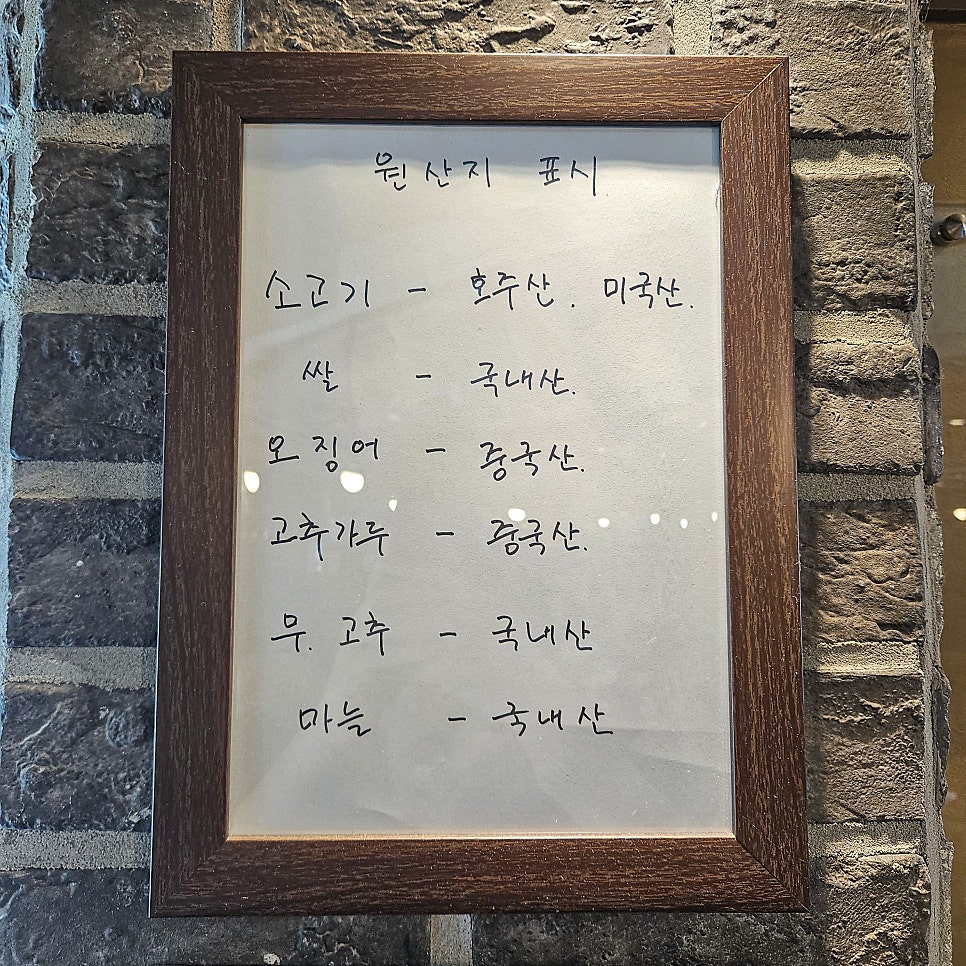 원산지 표시.
소고기 - 호주산. 미국산.
쌀 - 국내산.
오징어 - 중국산.
고추가루 - 중국산.
무. 고추 - 국내산
마늘 - 국내산